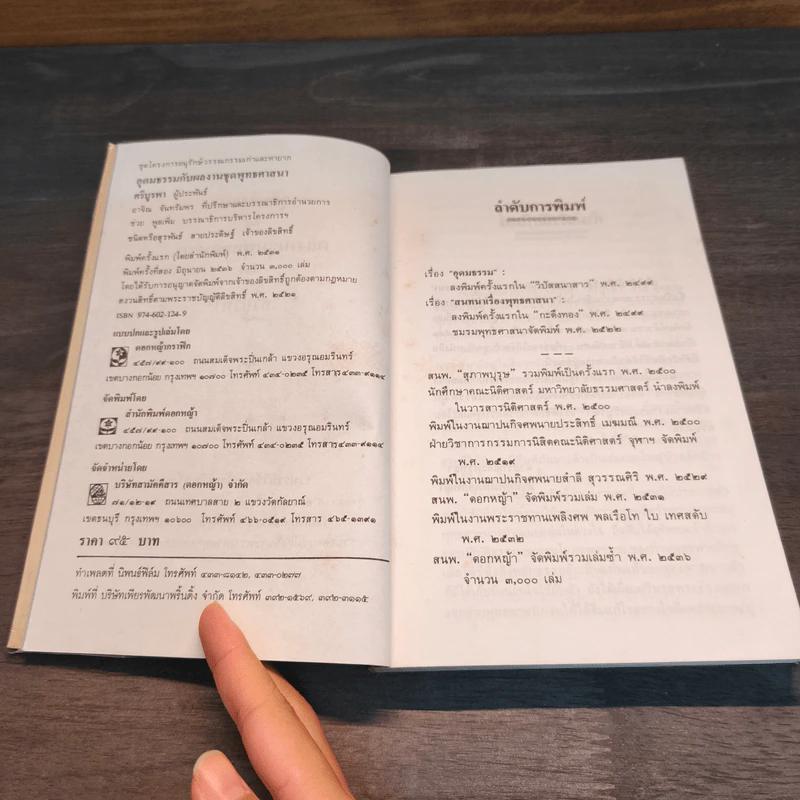 ชุดโครงการอนุรักษ์วรรณกรรมเก่าและหายาก
อุดมธรรมกับผลงานชุดพุทธศาสนา
ศรีบูรพา ผู้ประพันธ์
อาจิณ จันทรัมพร ที่ปรึกษาและบรรณาธิการอำนวยการ
ช่วย พูลเพิ่ม บรรณาธิการบริหารโครงการฯ
ชนิดหรือสุรพันธ์ สายประดิษฐ์ เจ้าของลิขสิทธิ์
พิมพ์ครั้งแรก (โดยสำนักพิมพ์) พ.ศ. ๒๕๓๑
พิมพ์ครั้งที่สอง มิถุนายน ๒๕๓๖ จำนวน ๓,๐๐๐ เล่ม
โดยได้รับการอนุญาตจัดพิมพ์จากเจ้าของลิขสิทธิ์ถูกต้องตามกฎหมาย
สงวนสิทธิ์ตามพระราชบัญญัติลิขสิทธิ์ พ.ศ. ๒๕๒๑
ISBN 974-602-124-9
แบบปกและรูปเล่มโดย
ดอกหญ้ากราฟิก
๔๕๗/๙๙-๑๐๐ ถนนสมเด็จพระปิ่นเกล้า แขวงอรุณอมรินทร์
เขตบางกอกน้อย กรุงเทพฯ ๑๐๗๐๐ โทรศัพท์ ๔๓๔-๐๒๓๕ โทรสาร ๔๓๓-๙๑๑๔
จัดพิมพ์โดย
สำนักพิมพ์ดอกหญ้า
๔๕๗/๙๙-๑๐๐ ถนนสมเด็จพระปิ่นเกล้า แขวงอรุณอมรินทร์
เขตบางกอกน้อย กรุงเทพฯ ๑๐๗๐๐ โทรศัพท์ ๔๓๔-๐๒๓๕ โทรสาร ๔๓๓-๙๑๑๔
จัดจำหน่ายโดย
บริษัทสามัคคีสาร (ดอกหญ้า) จำกัด
๗๑/๑๒-๑๙ ถนนเทศบาลสาย ๒ แขวงวัดกัลยาณ์
เขตธนบุรี กรุงเทพฯ ๑๐๖๐๐ โทรศัพท์ ๔๖๖-๐๕๑๙ โทรสาร ๔๖๕-๑๓๙๑
ราคา ๙๕ บาท
ทำเพลตที่ นิพนธ์ฟิล์ม โทรศัพท์ ๔๓๓-๘๑๔๒, ๔๓๓-๐๒๗๗
พิมพ์ที่ บริษัทเพียรพัฒนาพริ้นติ้ง จำกัด โทรศัพท์ ๓๙๒-๑๕๖๙, ๓๙๒-๓๑๑๕
ลำดับการพิมพ์
เรื่อง "อุดมธรรม" :
ลงพิมพ์ครั้งแรกใน "วิปัสสนาสาร" พ.ศ. ๒๔๙๙
เรื่อง "สนทนาเรื่องพุทธศาสนา" :
ลงพิมพ์ครั้งแรกใน "กะดึงทอง" พ.ศ. ๒๔๙๙
ชมรมพุทธศาสนาจัดพิมพ์ พ.ศ. ๒๕๒๒
สนพ. "สุภาพบุรุษ" รวมพิมพ์เป็นครั้งแรก พ.ศ. ๒๕๐๐
นักศึกษาคณะนิติศาสตร์ มหาวิทยาลัยธรรมศาสตร์ นำลงพิมพ์
ในวารสารนิติศาสตร์ พ.ศ. ๒๕๐๐
พิมพ์ในงานฌาปนกิจศพนายประสิทธิ์ เมฆมณี พ.ศ. ๒๕๐๐
ฝ่ายวิชาการกรรมการนิสิตคณะนิติศาสตร์ จุฬาฯ จัดพิมพ์
พ.ศ. ๒๕๑๙
พิมพ์ในงานฌาปนกิจศพนายสำลี สุวรรณศิริ พ.ศ. ๒๕๒๙
สนพ. "ดอกหญ้า" จัดพิมพ์รวมเล่ม พ.ศ. ๒๕๓๑
พิมพ์ในงานพระราชทานเพลิงศพ พลเรือโท ใบ เทศสดับ
พ.ศ. ๒๕๓๒
สนพ. "ดอกหญ้า" จัดพิมพ์รวมเล่มซ้ำ พ.ศ. ๒๕๓๖
จำนวน ๓,๐๐๐ เล่ม